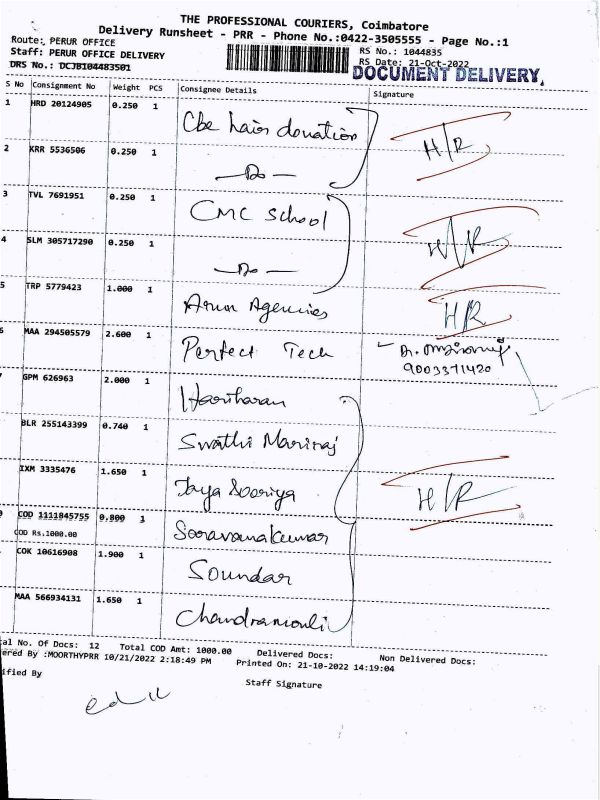 THE PROFESSIONAL COURIERS, Coimbatore
Delivery Runsheet - PRR - Phone No.:0422-3505555 - Page No.:1
Route: PERUR OFFICE
RS No.: 1044835
Staff: PERUR OFFICE DELIVERY
RS Date: 21-Oct-2022
DRS No.: DCJB104483501
DOCUMENT DELIVERY,
S No Consignment No Weight PCS Consignee Details Signature
1 HRD 20124905 0.250 1 Cbe hair donation H/R
2 KRR 5536506 0.250 1 — Do —
3 TVL 7691951 0.250 1 CMC School H/R
4 SLM 305717290 0.250 1 — Do —
5 TRP 5779423 1.000 1 Arun Agencies H/R
MAA 294505579 2.600 1 Perfect Tech
9003371420
GPM 626963 2.000 1 Hariharan
BLR 255143399 0.740 1 Swathi Mariraj
IXM 3335476 1.650 1 Jaya Sooriya H/R
COD 1111845755 0.800 1 Saravanakumar
COD Rs.1000.00
COK 10616908 1.900 1 Soundar
MAA 566934131 1.650 1 Chandramouli
al No. Of Docs: 12 Total COD Amt: 1000.00 Delivered Docs: Non Delivered Docs:
ered By :MOORTHYPRR 10/21/2022 2:18:49 PM Printed On: 21-10-2022 14:19:04
ified By Staff Signature